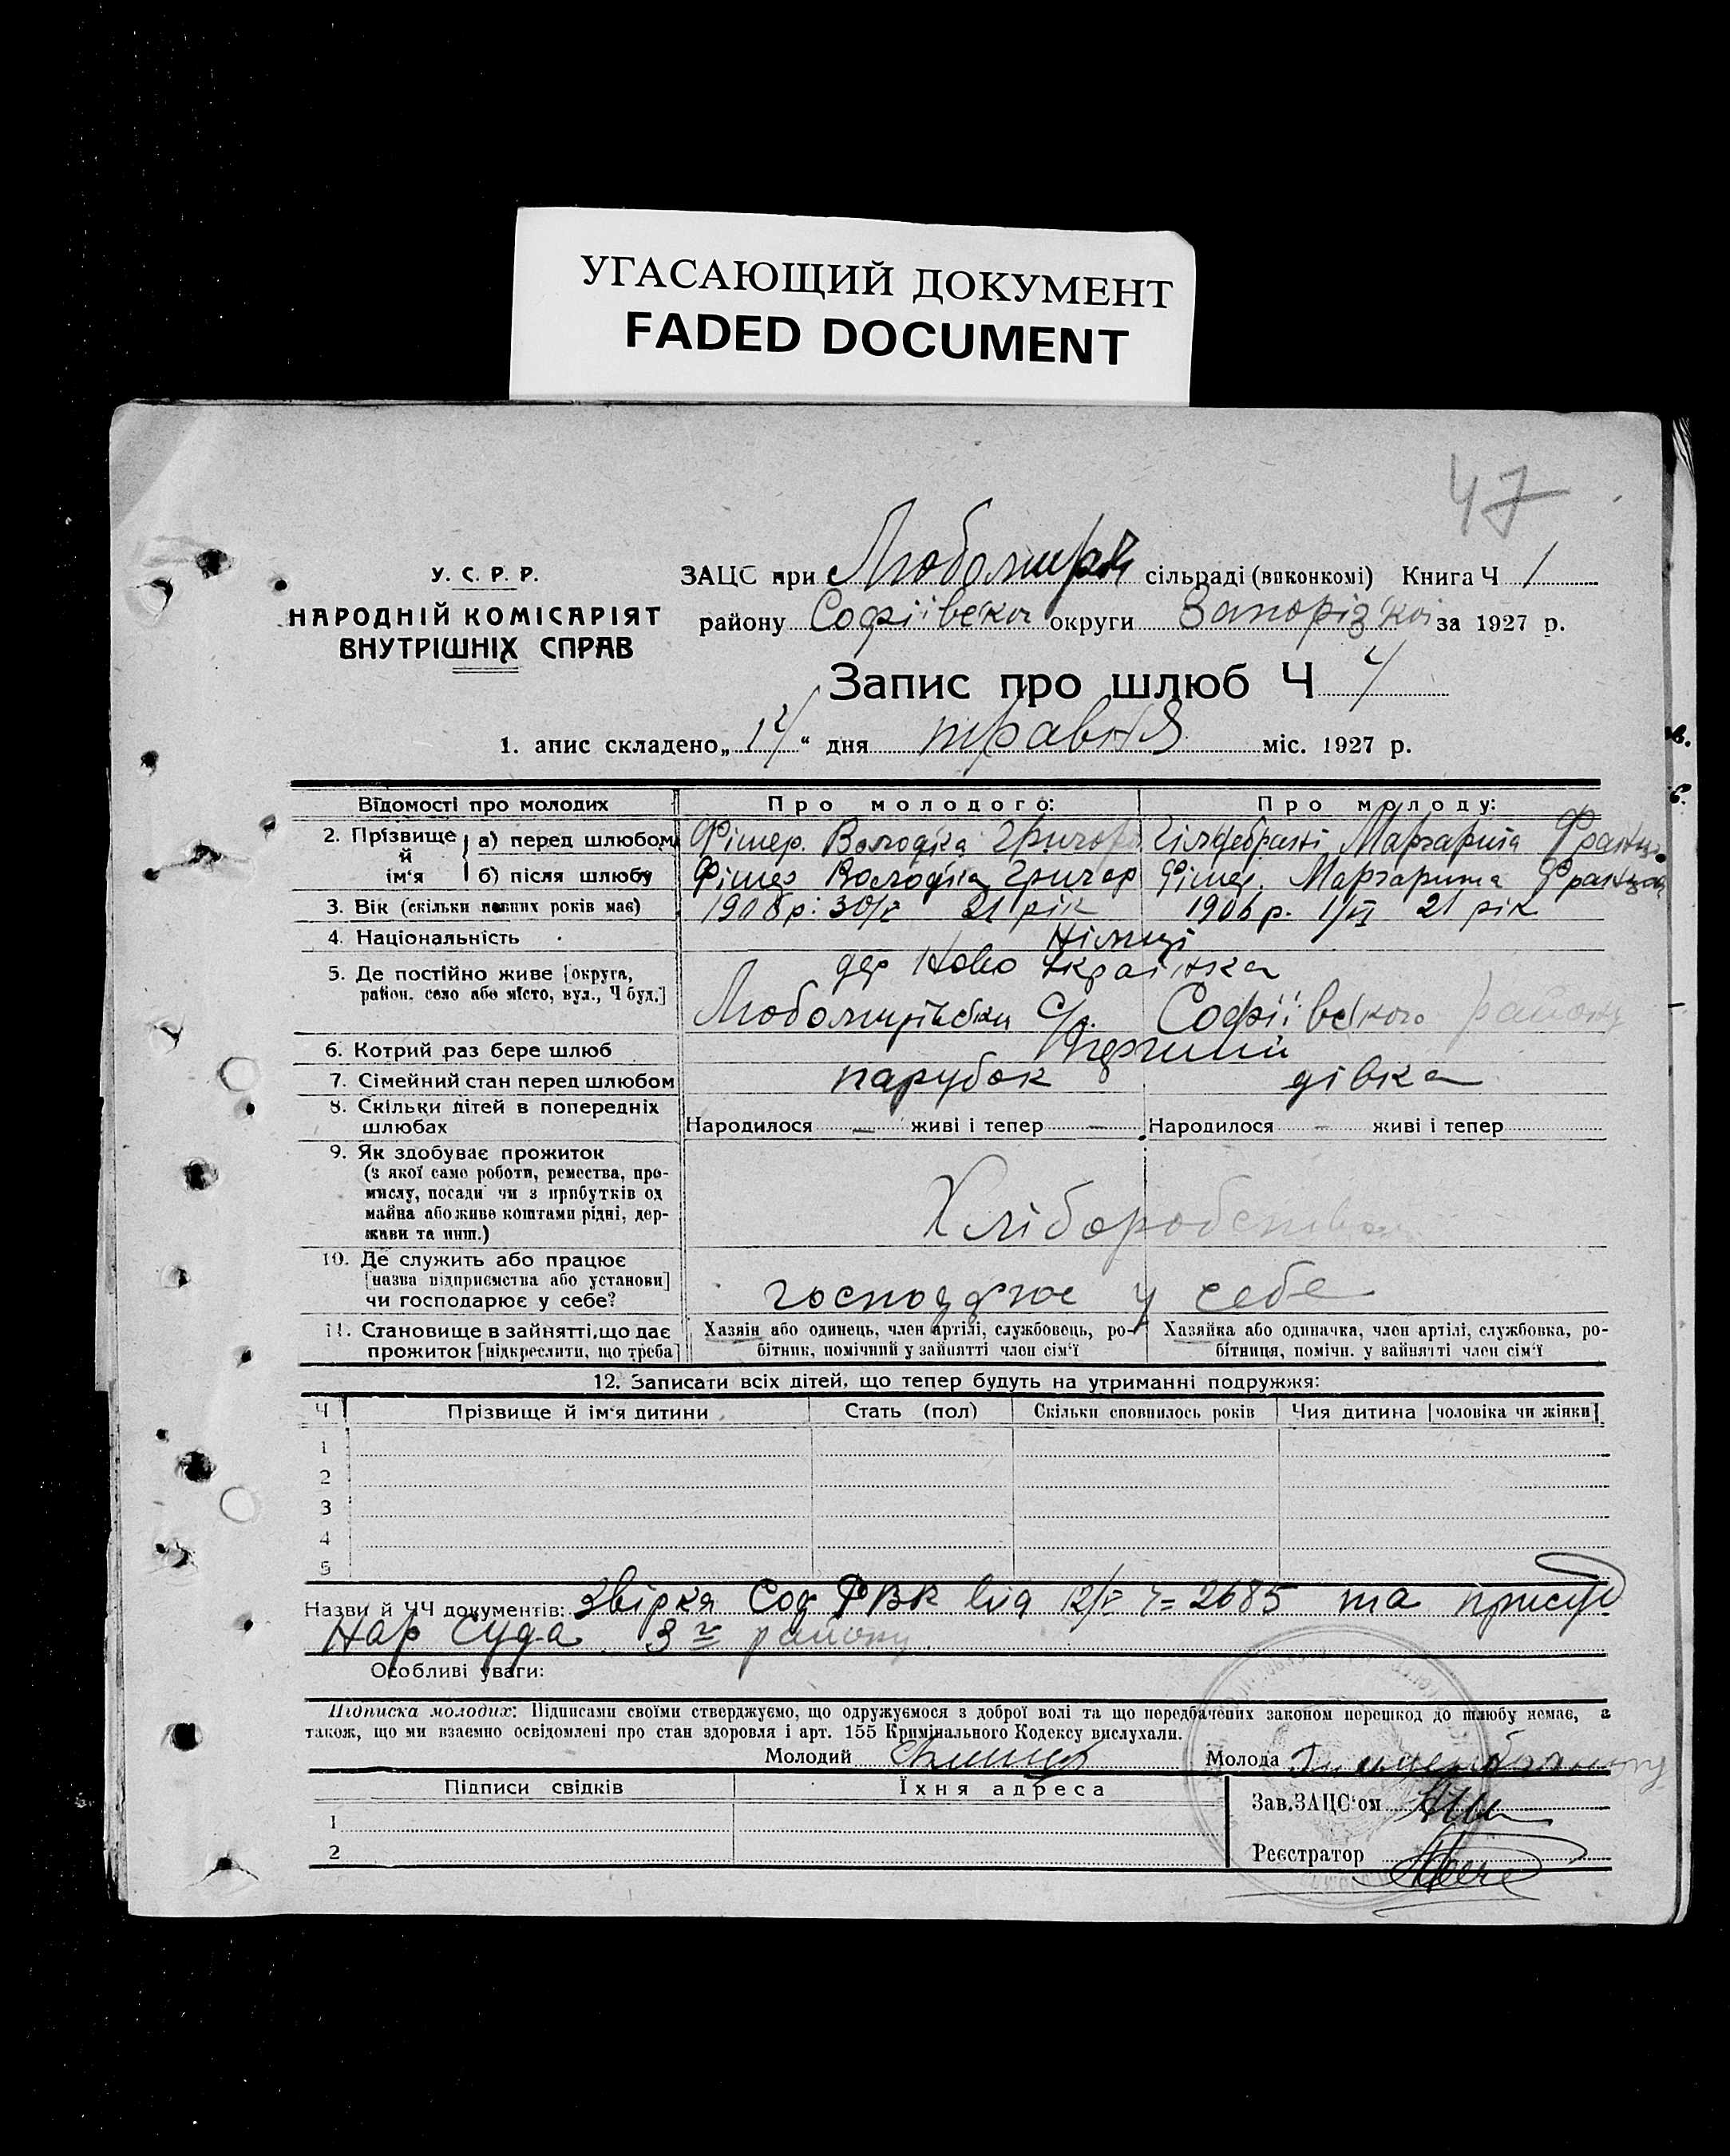 УГАСАЮЩИЙ ДОКУМЕНТ
FADED DOCUMENT
47
У. С. Р. Р.
НАРОДНІЙ КОМІСАРІЯТ
ВНУТРІШНІХ СПРАВ
ЗАЦС при сільраді (виконкомі) Книга Ч 1
району Софіївськ округи Запорізкої за 1927 р.
Запис про шлюб Ч 4
1. апис складено „14“ дня травня міс. 1927 р.
Відомості про молодих Про молодого: Про молоду:
2. Прізвище й ім‘я а) перед шлюбом Фішер. Григор Маргарита Франц
б) після шлюбу Фішер Григор Фішер. Маргарита Франц
3. Вік (скільки повних років має) 21 рік 1906 р. 1/VI 21 рік
4. Національність Німці
5. Де постійно живе [округа, район. село або місто, вул., Ч буд.] дер Ново Українка
Любомирівськ С/р. Софіївського району
6. Котрий раз бере шлюб Перший
7. Сімейний стан перед шлюбом парубок дівка
8. Скільки дітей в попередніх шлюбах Народилося — живі і тепер — Народилося — живі і тепер
9. Як здобуває прожиток
(з якої само роботи, ремества, про-
мислу, посади чи з прибутків од
майна або живе коштами рідні, дер-
жави та инш.)
Хліборобством
10. Де служить або працює
[назва підприємства або установи]
чи господарює у себе?
у себе
11. Становище в зайнятті, що дає
прожиток [підкреслити, що треба]
Хазяїн або одинець, член артілі, службовець, ро-
бітник, помічний у зайнятті член сім‘ї
Хазяйка або одиначка, член артілі, службовка, ро-
бітниця, помічн. у зайнятті член сім‘ї
12. Записати всіх дітей, що тепер будуть на утриманні подружжя:
Ч Прізвище й ім‘я дитини Стать (пол) Скільки сповнилось років Чия дитина [чоловіка чи жінки]
1
2
3
4
5
Назви й ЧЧ документів: Звірка Соф РВК від 2685 та присуд
Нар Суда 3 району
Особливі уваги:
Підписка молодих: Підписами своїми стверджуємо, що одружуємося з доброї волі та що передбачених законом перешкод до шлюбу немає, а
також, що ми взаємно освідомлені про стан здоровля і арт. 155 Кримінального Кодексу вислухали.
Молодий Молода
Підписи свідків Їхня адреса
Зав. ЗАЦС‘ом
1
2
Реєстратор